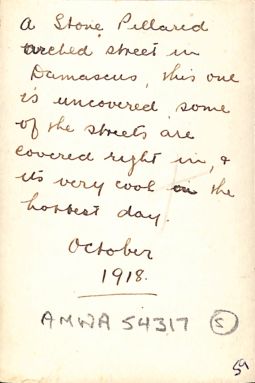 A Stone Pillared
arched street in
Damascus, this one
is uncovered, some
of the streets are
covered right in, &
its very cool on the
hottest day.
October
1918.
AMWA 54317 S
59